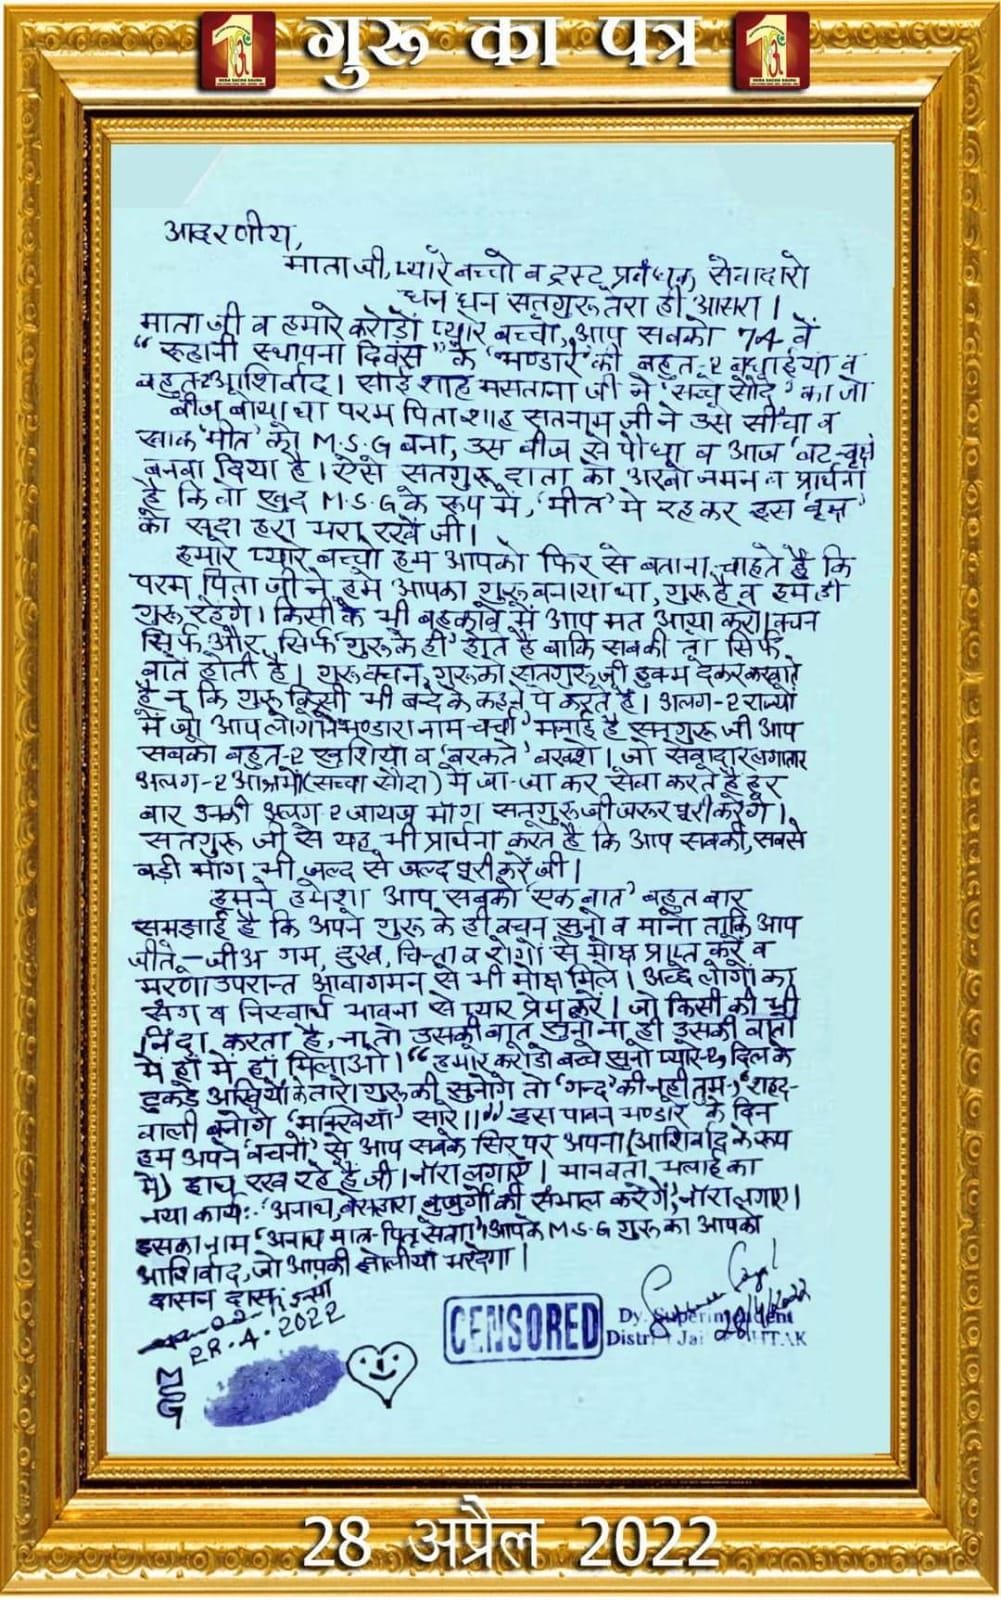 गुरू का पत्र
आदरणीय,
माता जी, प्यारे बच्चो व ट्रस्ट प्रबंधक, सेवादारो
धन धन सतगुरू तेरा ही आसरा।
माता जी व हमारे करोड़ों प्यारे बच्चो, आप सबको 74 वें
“रूहानी स्थापना दिवस” के ‘भण्डारे’ की बहुत-2 बधाईयां व
बहुत-2 आशिर्वाद। साईं शाह मसताना जी ने ‘सच्चे सौदे’ का जो
बीज बोया था परम पिता शाह सतनाम जी ने उसे सींचा व
खाक ‘मीत’ को M.S.G बना, उस बीज से पौधा व आज ‘वट-वृक्ष’
बनवा दिया है। ऐसे सतगुरू दाता को अरबों नमन व प्रार्थना
है कि वो खुद M.S.G के रूप में, ‘मीत’ में रहकर इस ‘वृक्ष’
को सदा हरा भरा रखें जी।
हमारे प्यारे बच्चो हम आपको फिर से बताना चाहते हैं कि
परम पिता जी ने हमें आपका गुरू बनाया था, गुरू है व हम ही
गुरू रहेंगे। किसी के भी बहकावे में आप मत आया करो। वचन
सिर्फ और सिर्फ ‘गुरू के ही’ होते है बाकि सबकी तो सिर्फ
बातें होती है। गुरू वचन, गुरू को सतगुरू जी हुक्म देकर करवाते
है न कि गुरू किसी भी बन्दे के कहने पे करते है। अलग-2 राज्यों
में जो आप लोगों ने ‘भण्डारा नाम चर्चा’ मनाई है सतगुरू जी आप
सबको बहुत-2 खुशियां व ‘बरकतें’ बख्शे। जो सेवादार लगातार
अलग-2 आश्रमों (सच्चा सौदा) में जा-जा कर सेवा करते है हर
बार उनकी अलग-2 जायज मांग सतगुरू जी जरूर पूरी करेंगे।
सतगुरू जी से यह भी प्रार्थना करते है कि आप सबकी, सबसे
बड़ी मांग भी जल्द से जल्द पूरी करें जी।
हमने हमेशा आप सबको ‘एक बात’ बहुत बार
समझाई है कि अपने गुरू के ही वचन सुनो व मानो ताकि आप
जीते-जीअ गम, दुख, चिन्ता व रोगों से मोक्ष प्राप्त करें व
मरणाउपरान्त आवागमन से भी मोक्ष मिले। अच्छे लोगों का
संग व निस्वार्थ भावना से प्यार प्रेम करें। जो किसी की भी
निंदा करता है, ना तो उसकी बात सुनो ना ही उसकी बातों
में हां में हां मिलाओ। “हमारे करोड़ों बच्चे सुनो प्यारे-2, दिल के
टुकड़े अखियों के तारे। गुरू की सुनोगे तो ‘गन्द’ की नहीं तुम, ‘शहद-
वाली’ बनोगे ‘मक्खियां’ सारे।।” इस पावन भण्डारे के दिन
हम अपने ‘वचनों’ से आप सबके सिर पर अपना (आशिर्वाद के रूप
में) हाथ रख रहे हैं जी। नारा लगाएं। मानवता भलाई का
नया कार्य:- ‘अनाथ, बेसहारा बुजुर्गों की संभाल करेंगे’, नारा लगाएं।
इसका नाम ‘अनाथ मातृ-पितृ सेवा’। आपके M.S.G गुरू का आपको
आशिर्वाद, जो आपकी झोलीयां भर देगा।
दासन दास, इन्सां
28.4.2022
MSG
CENSORED
Dy. Superintendent
28/4/2022
28 अप्रैल 2022